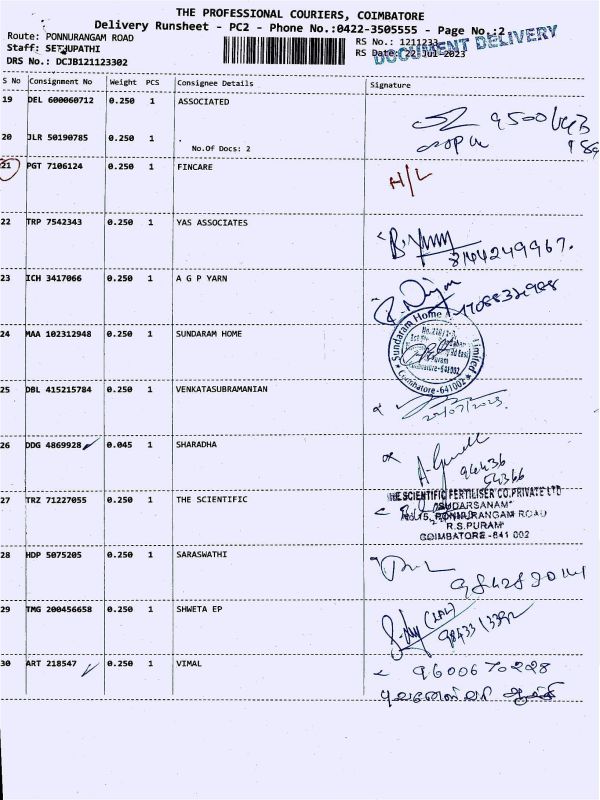 THE PROFESSIONAL COURIERS, COIMBATORE
Delivery Runsheet - PC2 - Phone No.:0422-3505555 - Page No.:2
Route: PONNURANGAM ROAD
Staff: SETHUPATHI
DRS No.: DCJB121123302
RS No.: 1211233
RS Date: 22-Jul-2023
DOCUMENT DELIVERY
S No Consignment No Weight PCS Consignee Details Signature
19 DEL 600060712 0.250 1 ASSOCIATED
20 JLR 50190785 0.250 1 .
No.Of Docs: 2
21 PGT 7106124 0.250 1 FINCARE H/L
22 TRP 7542343 0.250 1 YAS ASSOCIATES
8144249967.
23 ICH 3417066 0.250 1 A G P YARN
24 MAA 102312948 0.250 1 SUNDARAM HOME
Sundaram Home Limited
Coimbatore-641002
25 DBL 415215784 0.250 1 VENKATASUBRAMANIAN
26 DDG 4869928 0.045 1 SHARADHA
94436
54366
27 TRZ 71227055 0.250 1 THE SCIENTIFIC
THE SCIENTIFIC FERTILISER CO.PRIVATE LTD
"SUDARSANAM"
No.15, PONNURANGAM ROAD
R.S.PURAM
COIMBATORE-641 002
28 HDP 5075205 0.250 1 SARASWATHI
29 TMG 200456658 0.250 1 SHWETA EP
30 ART 218547 0.250 1 VIMAL
9600670228